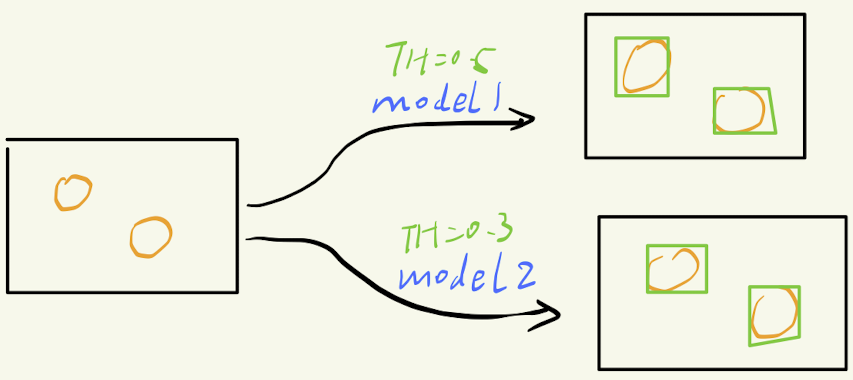 TH=0.5
model1
TH=0.3
model2